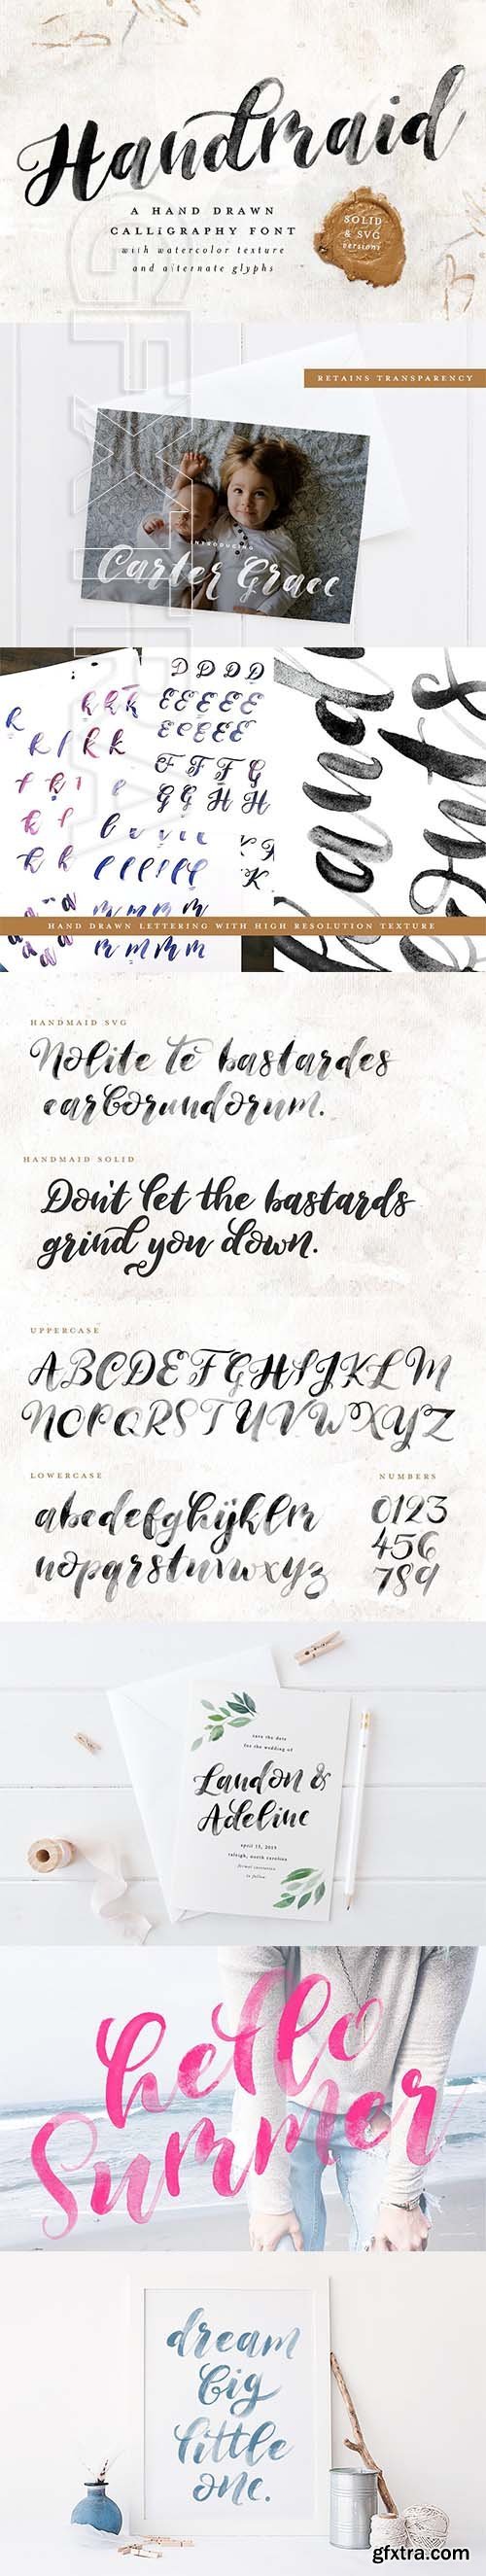 Handmaid
A HAND DRAWN
CALLIGRAPHY FONT
with watercolor texture
and alternate glyphs
SOLID
& SVG
versions
GFXTRA
RETAINS TRANSPARENCY
INTRODUCING
Carter Grace
D D D D
E E E E E
E E E E E
F F F G
G G H H
HAND DRAWN LETTERING WITH HIGH RESOLUTION TEXTURE
HANDMAID SVG
Nolite te bastardes
carborundorum.
HANDMAID SOLID
Don't let the bastards
grind you down.
UPPERCASE
ABCDEFGHIJKLM
NOPQRSTUVWXYZ
LOWERCASE
abcdefghijklm
nopqrstuvwxyz
NUMBERS
0123
456
789
save the date
for the wedding of
Landon &
Adeline
april 13, 2019
raleigh, north carolina
formal invitation
to follow
hello
Summer
dream
big
little
one.
gfxtra.com